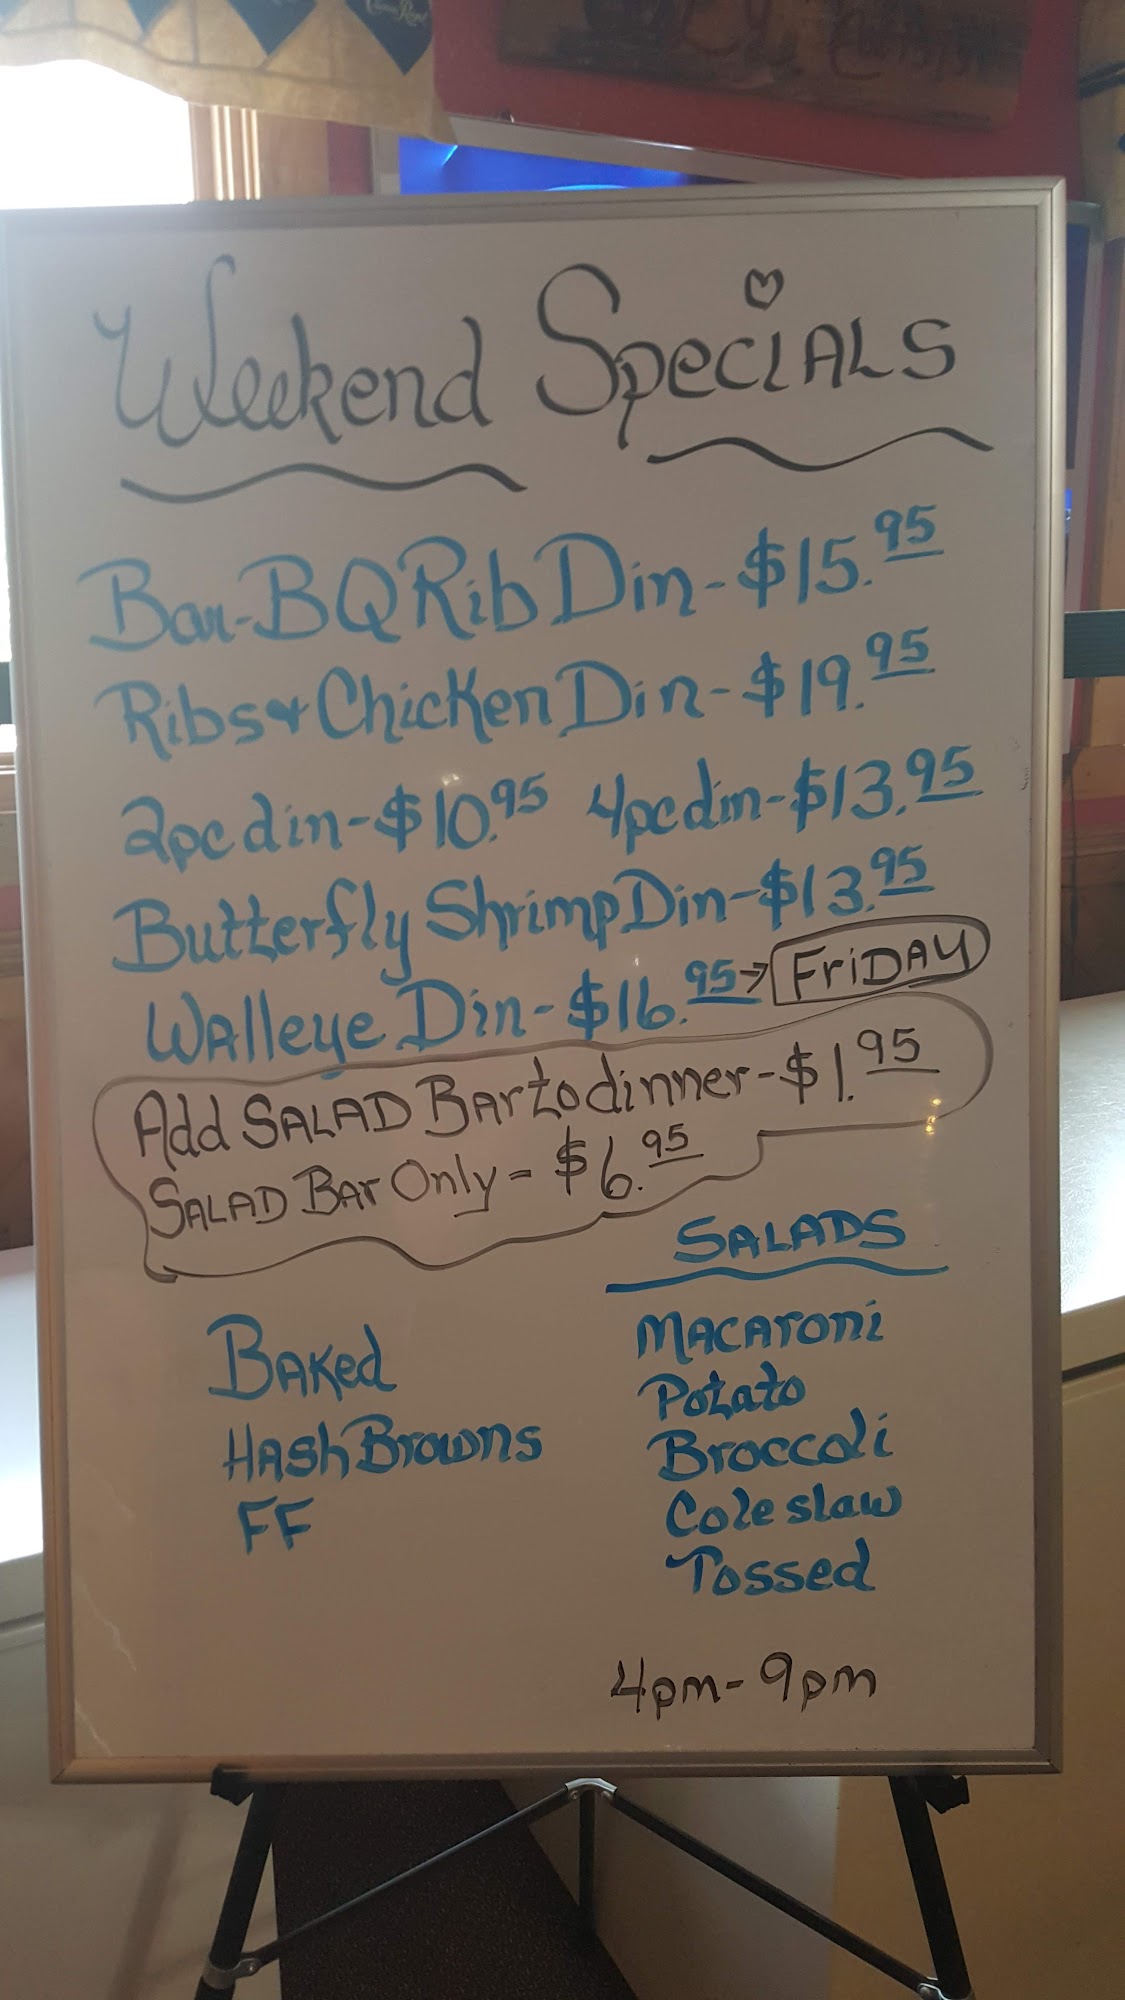 Crown Royal
Weekend Specials
Bar-BQ Rib Din - $15.95
Ribs & Chicken Din - $19.95
2pc din - $10.95 4pc din - $13.95
Butterfly Shrimp Din - $13.95
Walleye Din - $16.95 → Friday
Add Salad Bar to dinner - $1.95
Salad Bar Only = $6.95
Salads
Baked
Hash Browns
FF
Macaroni
Potato
Broccoli
Coleslaw
Tossed
4pm - 9pm